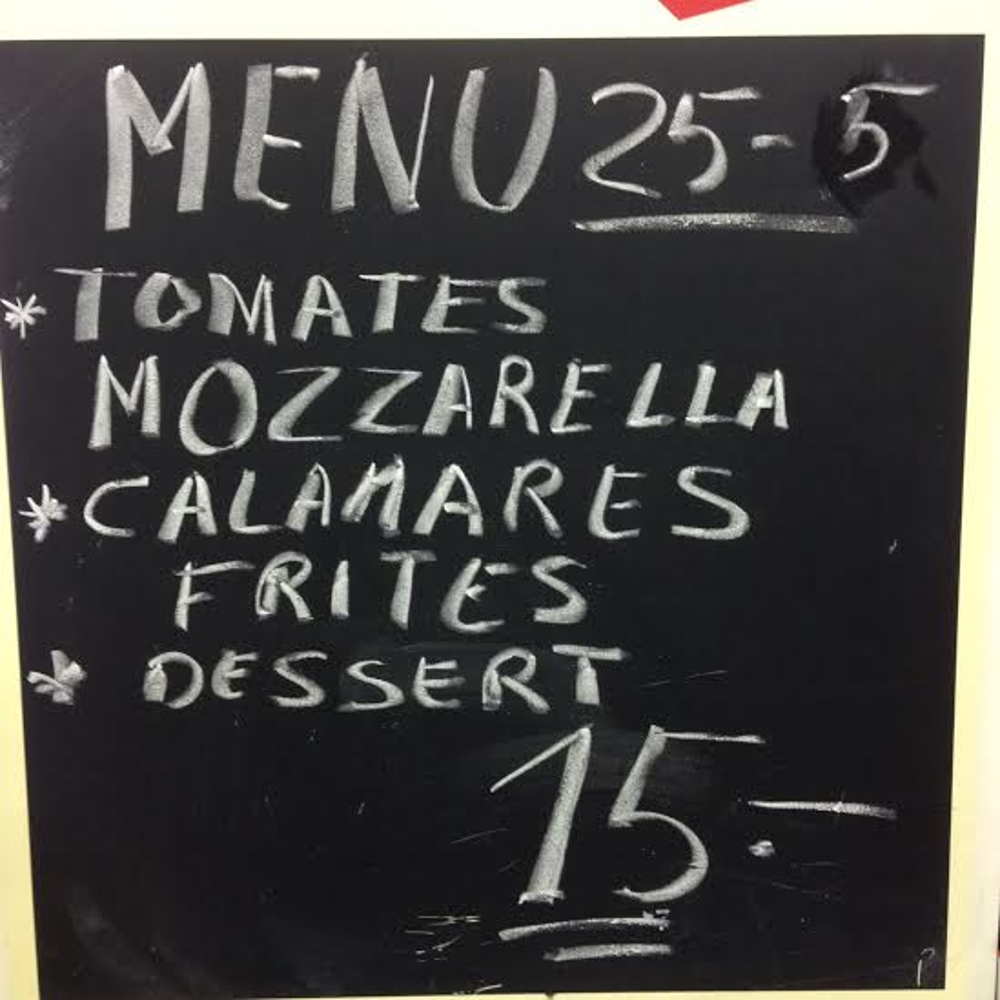 MENU 25-5
* TOMATES
MOZZARELLA
* CALAMARES
FRITES
* DESSERT
15.-